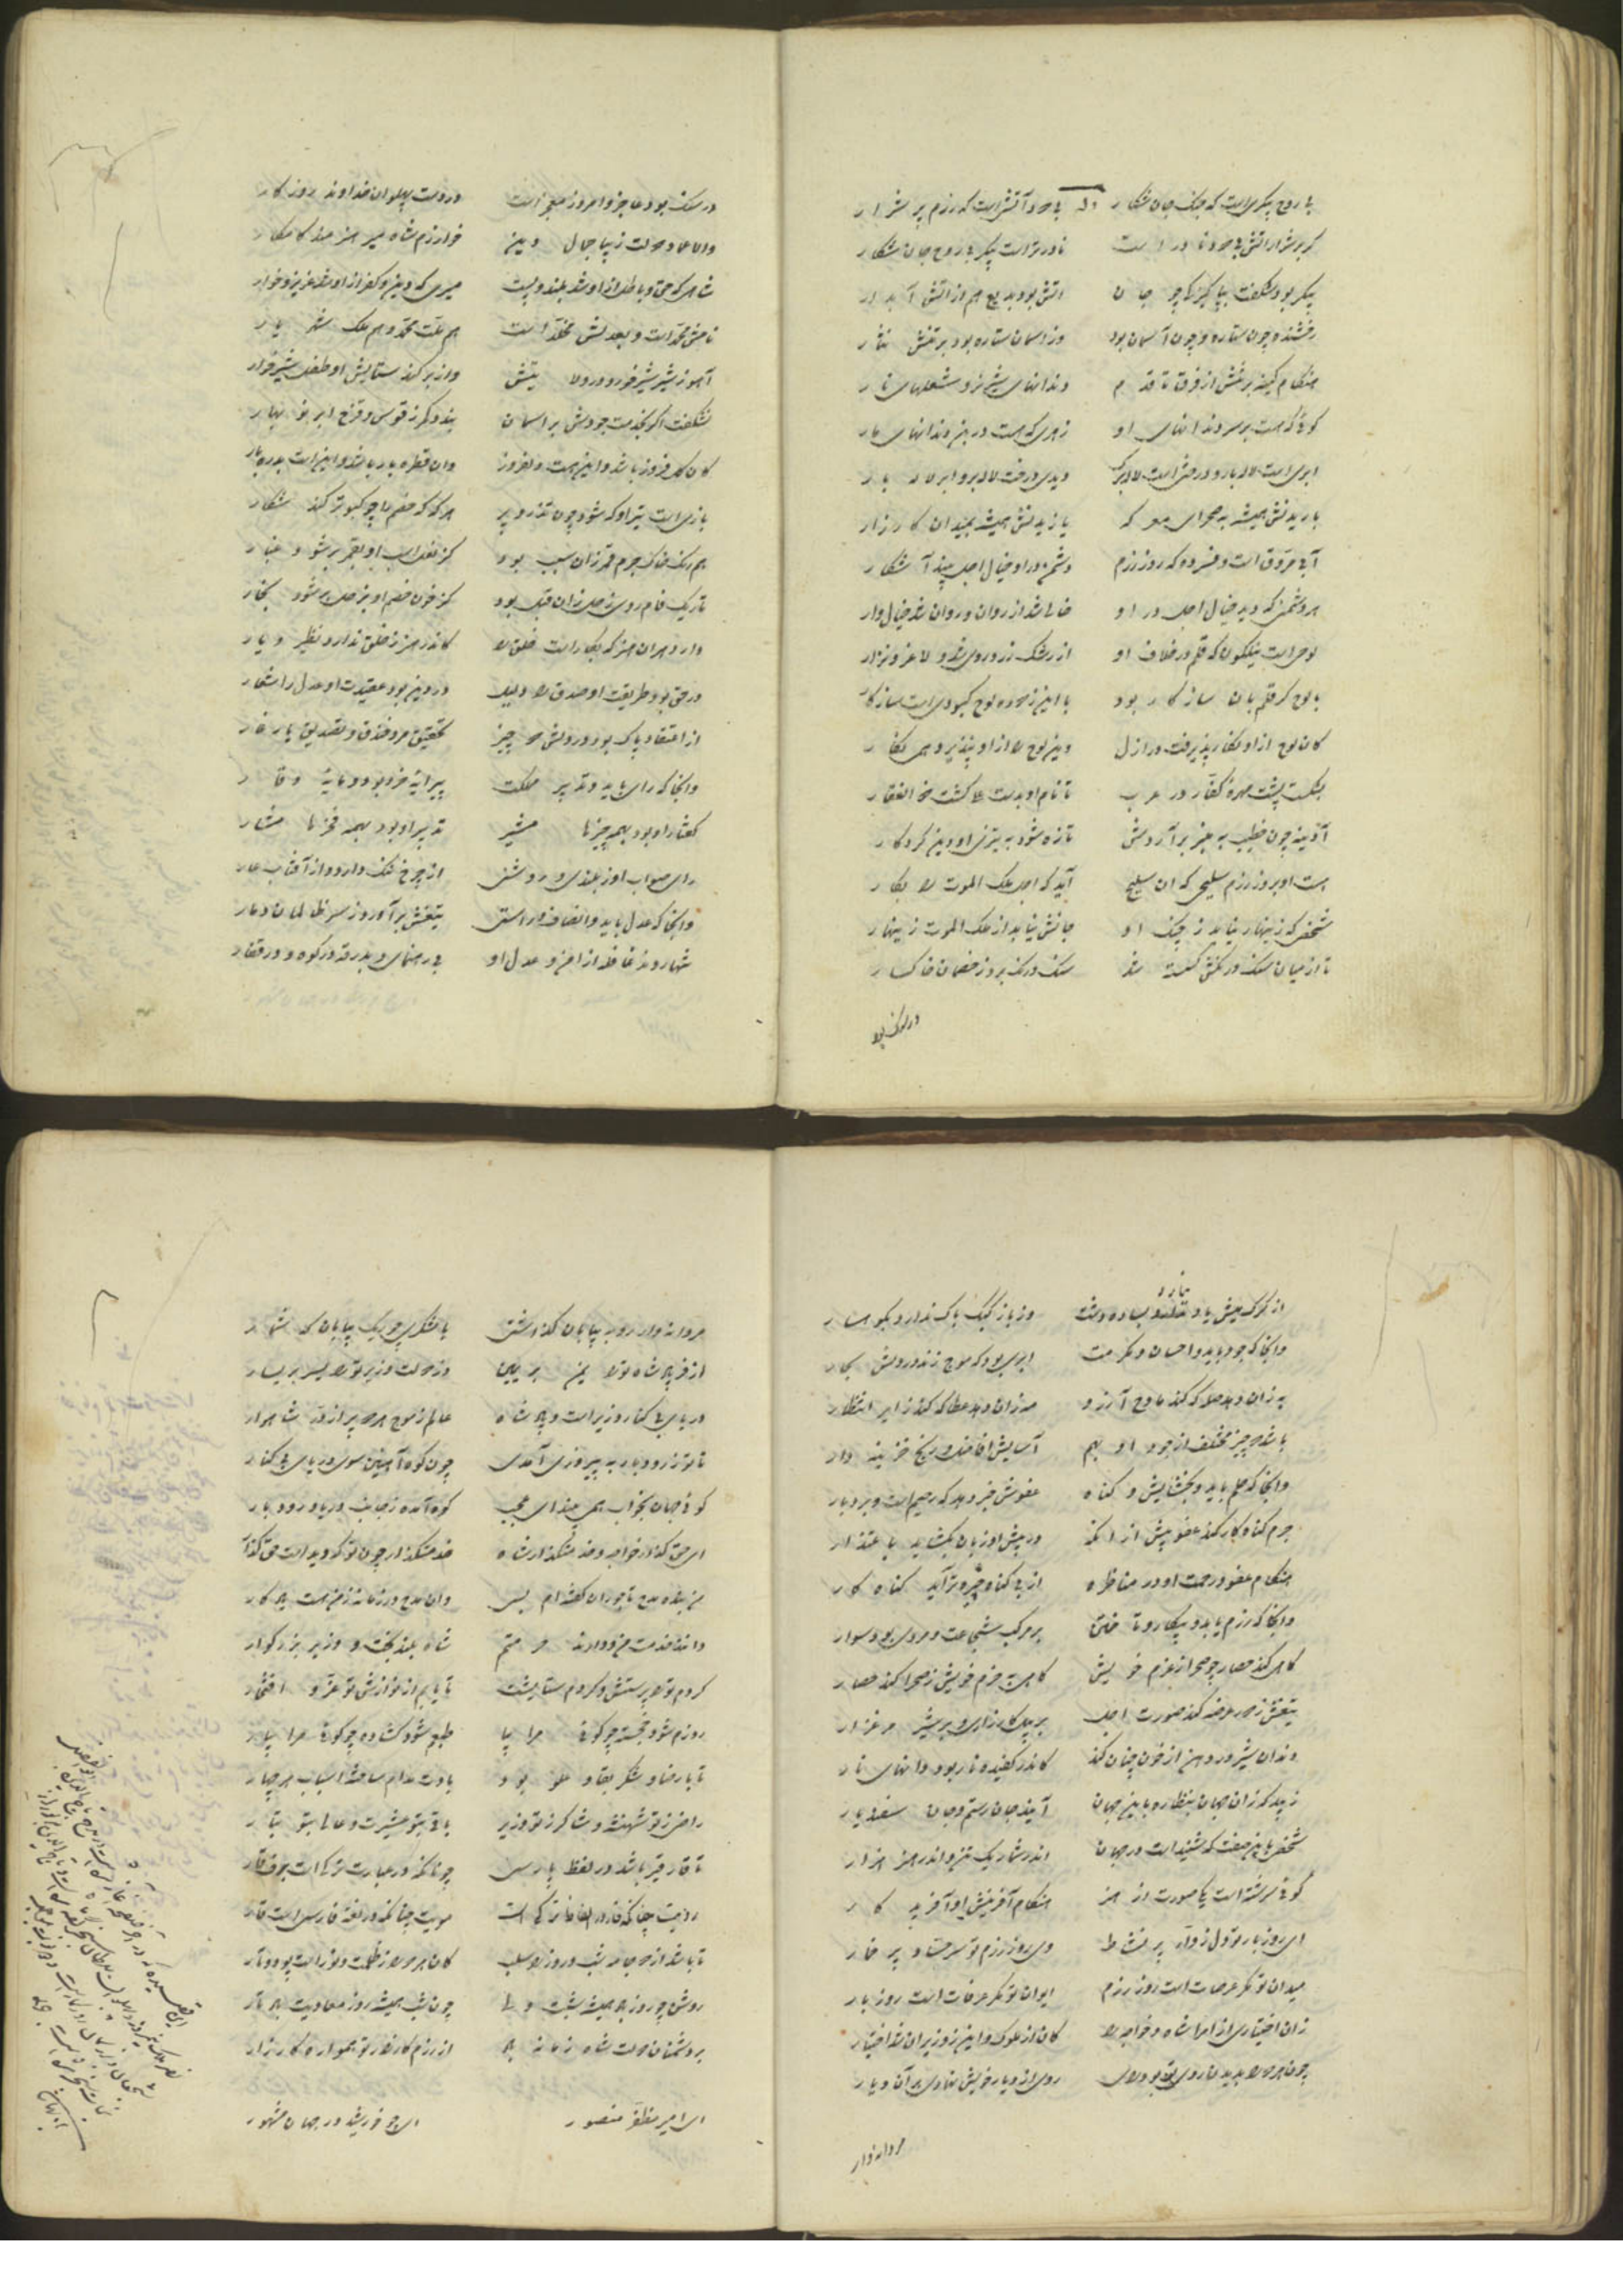 بی روح پیکریست که جنگ جان شکار وله بی دود آتش است که رزم پر شرار
گر پر شرار آتش بی دود نادر است نادرتر است پیکر بی روح جان شکار
پیکر بود شگفت بپاکیزگی چو جان آتش بود بدیع هم از آتش آبدار
رخشنده چون ستاره و چون آسمان بود وز آسمان ستاره بود بر تنش نثار
هنگام کینه بر تنش از فرق تا قدم دندانهای شیر نر و شعلهای نار
گوئی که هست بر سر دندانهای او زهری که هست در بن دندانهای مار
ابری است لاله بار و درختی است لاله بر دیدی درخت لاله بر و ابر لاله بار
باریدنش همیشه به صحرای معرکه یازیدنش همیشه بمیدان کارزار
آبی مروق است و فسرده که روز رزم دشمن درو خیال اجل بیند آشکار
هر دشمنی که دید خیال اجل در او خالی شد از روان و روان شد خیال وار
لوحی است نیلگون که قلم در خلاف او از رشک زرد روی شد و لاغر و نزار
با لوح گر قلم بان سازگار بود با این زدوده لوح کبودی است سازگار
کان لوح از او نگار پذیرفت در ازل وین لوح را از او نپذیرد همی نگار
بشکست پشت مهره کفار در عرب تا نام او بدست علی گشت ذو الفقار
آدینه چون خطیب به منبر برآردش تازه شود به تیزی او دین کردگار
هست او بروز رزم سلیحی که آن سلیح آید که اجل ملک الموت را بکار
شخصی که زینهار نیابد ز چنگ او جانش نیابد از ملک الموت زینهار
تا از میان سنگ در تنش گسسته شد سنگ و رنگ بروز خصمان خاکسار
در سنگ بود
در سنگ بود عاجز و امروز معجز است در دست پهلوان خداوند روزگار
والا علاء دولت زیبا جمال دین خوارزم شاه میر هنرمند کامکار
شاهی که حق و باطل از او شد بلند و پست میری که دین و کفر از او شد عزیز و خوار
نامش محمد است و بعدلش مخلد است هم ملت محمد و هم ملک شهریار
آهو ز شیر شیر خورد در ولایتش واز بر کند ستایش او طفل شیرخوار
نشگفت اگر بخدمت جودش بر آسمان بندد کمر ز قوس و قزح ابر نوبهار
کان گل فروز باشد و این هست دلفروز وان قطره بار باشد و این است بدره بار
بازی است تیر او که شود چون تذرو پر هر گه که خصم را چو کبوتر کند شکار
هم رنگ خاک جرم قمر زان سبب بود کز نعل اسب او بقمر بر شود غبار
تاریک فام روی زحل زان قبل بود کز خون خصم او بزحل بر شود بخار
دارد هر آن هنر که بکار است خلق را کاندر هنر ز خلق ندارد نظیر و یار
در حق بود طریقت او صدق را دلیل در دین بود عقیدت او عدل را شعار
از اعتقاد پاک بود در دلش دو چیز تحقیق مرد خندق و تصدیق یار غار
وآنجا که رای باید و تدبیر مملکت پیرایه خرد بود و مایه وقار
گفتار او بود بهمه چیزها مشیر تدبیر او بود بهمه فخرها مشار
رای صواب او ز بلندی و روشنی از چرخ ننگ دارد و از آفتاب عار
وآنجا که عدل باید و انصاف و راستی تیغش برآورد ز سر ظالمان دمار
تنها روند قافله از امن و عدل او بی رهنمای و بدرقه در کوه و در قفار
از گرگ میش یاد نیارد بساده دشت وز باز کبک باک ندارد بکوهسار
وآنجا که جود باید و احسان و مکرمت ابری بود که موج زند در دلش بحار
به زان دهد صله که کند مادح آرزو مه زان دهد عطا که کند زایر انتظار
باشد دو چیز مختلف از جود او بهم آسایش افاضل و رنج خزینه دار
وآنجا که حلم باید و بخشایش و گناه عفوش خبر دهد که رحیم است و بردبار
جرم گناهکار کند عفو پیش از آنکه در پیش او زبان بگشاید باعتذار
هنگام عفو و رحمت او در مناظره از بی گناه چیره‌تر آید گناه کار
وآنجا که رزم باید و پیکار و تاختن بر مرکب شجاعت و مردی بود سوار
گاهی کند حصار چو صحرا ز عزم خویش گاهی ز حزم خویش ز صحرا کند حصار
تیغش ز دور عرضه کند صورت اجل بر پیل کارزاری و بر شیر مرغزار
دندان شیر در دهن از خون چنان کند کاندر کفیده نار بود دانهای نار
زیبد که زان جهان بنظاره باین جهان آیند جان رستم و جان سفندیار
شخصی باین صفت که شنیدست در جهان اندر شمار یک تن و اندر هنر هزار
گوئی سرشته است یکی صورت از هنر هنگام آفرینش او آفریدگار
ای روز بار تو دل زوار پر نشاط وی روز رزم تو سر حساد پر خمار
میدان تو مگر عرصات است روز رزم ایوان تو مگر عرفات است روز بار
زان اختیاری از امرا شاه و خواجه را کان از ملوک و این ز وزیران شد اختیار
چون هر دو را بدیدن روی تو بود رای روی از دیار خویش نهادی بر آن دیار
مردانه وار
مردانه وار رو به بیابان گذاشتی با لشکری چو ریگ بیابان که شمار
از فر پادشاه تو را یمن بر یمین وز دولت وزیر تو را یسر بر یسار
دریای بی کنار وزیر است و پادشاه عالم ز موج هر دو پر از در شاهوار
تا تو ز رودبار به پیروزی آمدی چون کوه آهنین سوی دریای بی کنار
گوئی جهان بخواب همی بیند ای عجب کوه آمده ز جانب دریا و رودبار
ای حق گذار خواجه و خدمتگذار شاه خدمتگذار چون تو که دیدست حق گذار
من بنده مدح تاجوران گفته‌ام بسی وان مدح در زمانه ز من هست یادگار
دانند خدمت من و دارند حرمتم شاه بلند بخت و وزیر بزرگوار
کردم تو را پرستش و کردم ستایشت تا یابم از نوازش تو عز و افتخار
روزم شود خجسته چو گوئی مرا بیا طبعم شود گشاده چو گوئی مرا بیار
تا با رضا و شکر بقا و علو بود بادت مدام ساخته اسباب هر چهار
راضی ز تو شهنشه و شاکر ز تو وزیر باقی بتو عشیرت و عالی بتو تبار
تا قار قیر باشد در لفظ پارسی چونانکه در عبارت ترک است برف قار
رویت چنانکه قار در الفاظ ترکی است مویت چنانکه در لغت فارسی است قار
تا باشد از دو جامه شب و روز را سلب کان هر دو را ز ظلمت و نور است پود و تار
روشن چو روز باد همیشه شب ولی چون شب همیشه روز معادیت باد تار
بر دشمنان دولت شاه زمانه باد از رزم کارزار تو همواره کارزار
ای امیر مظفر منصور ای چو خورشید در جهان مشهور